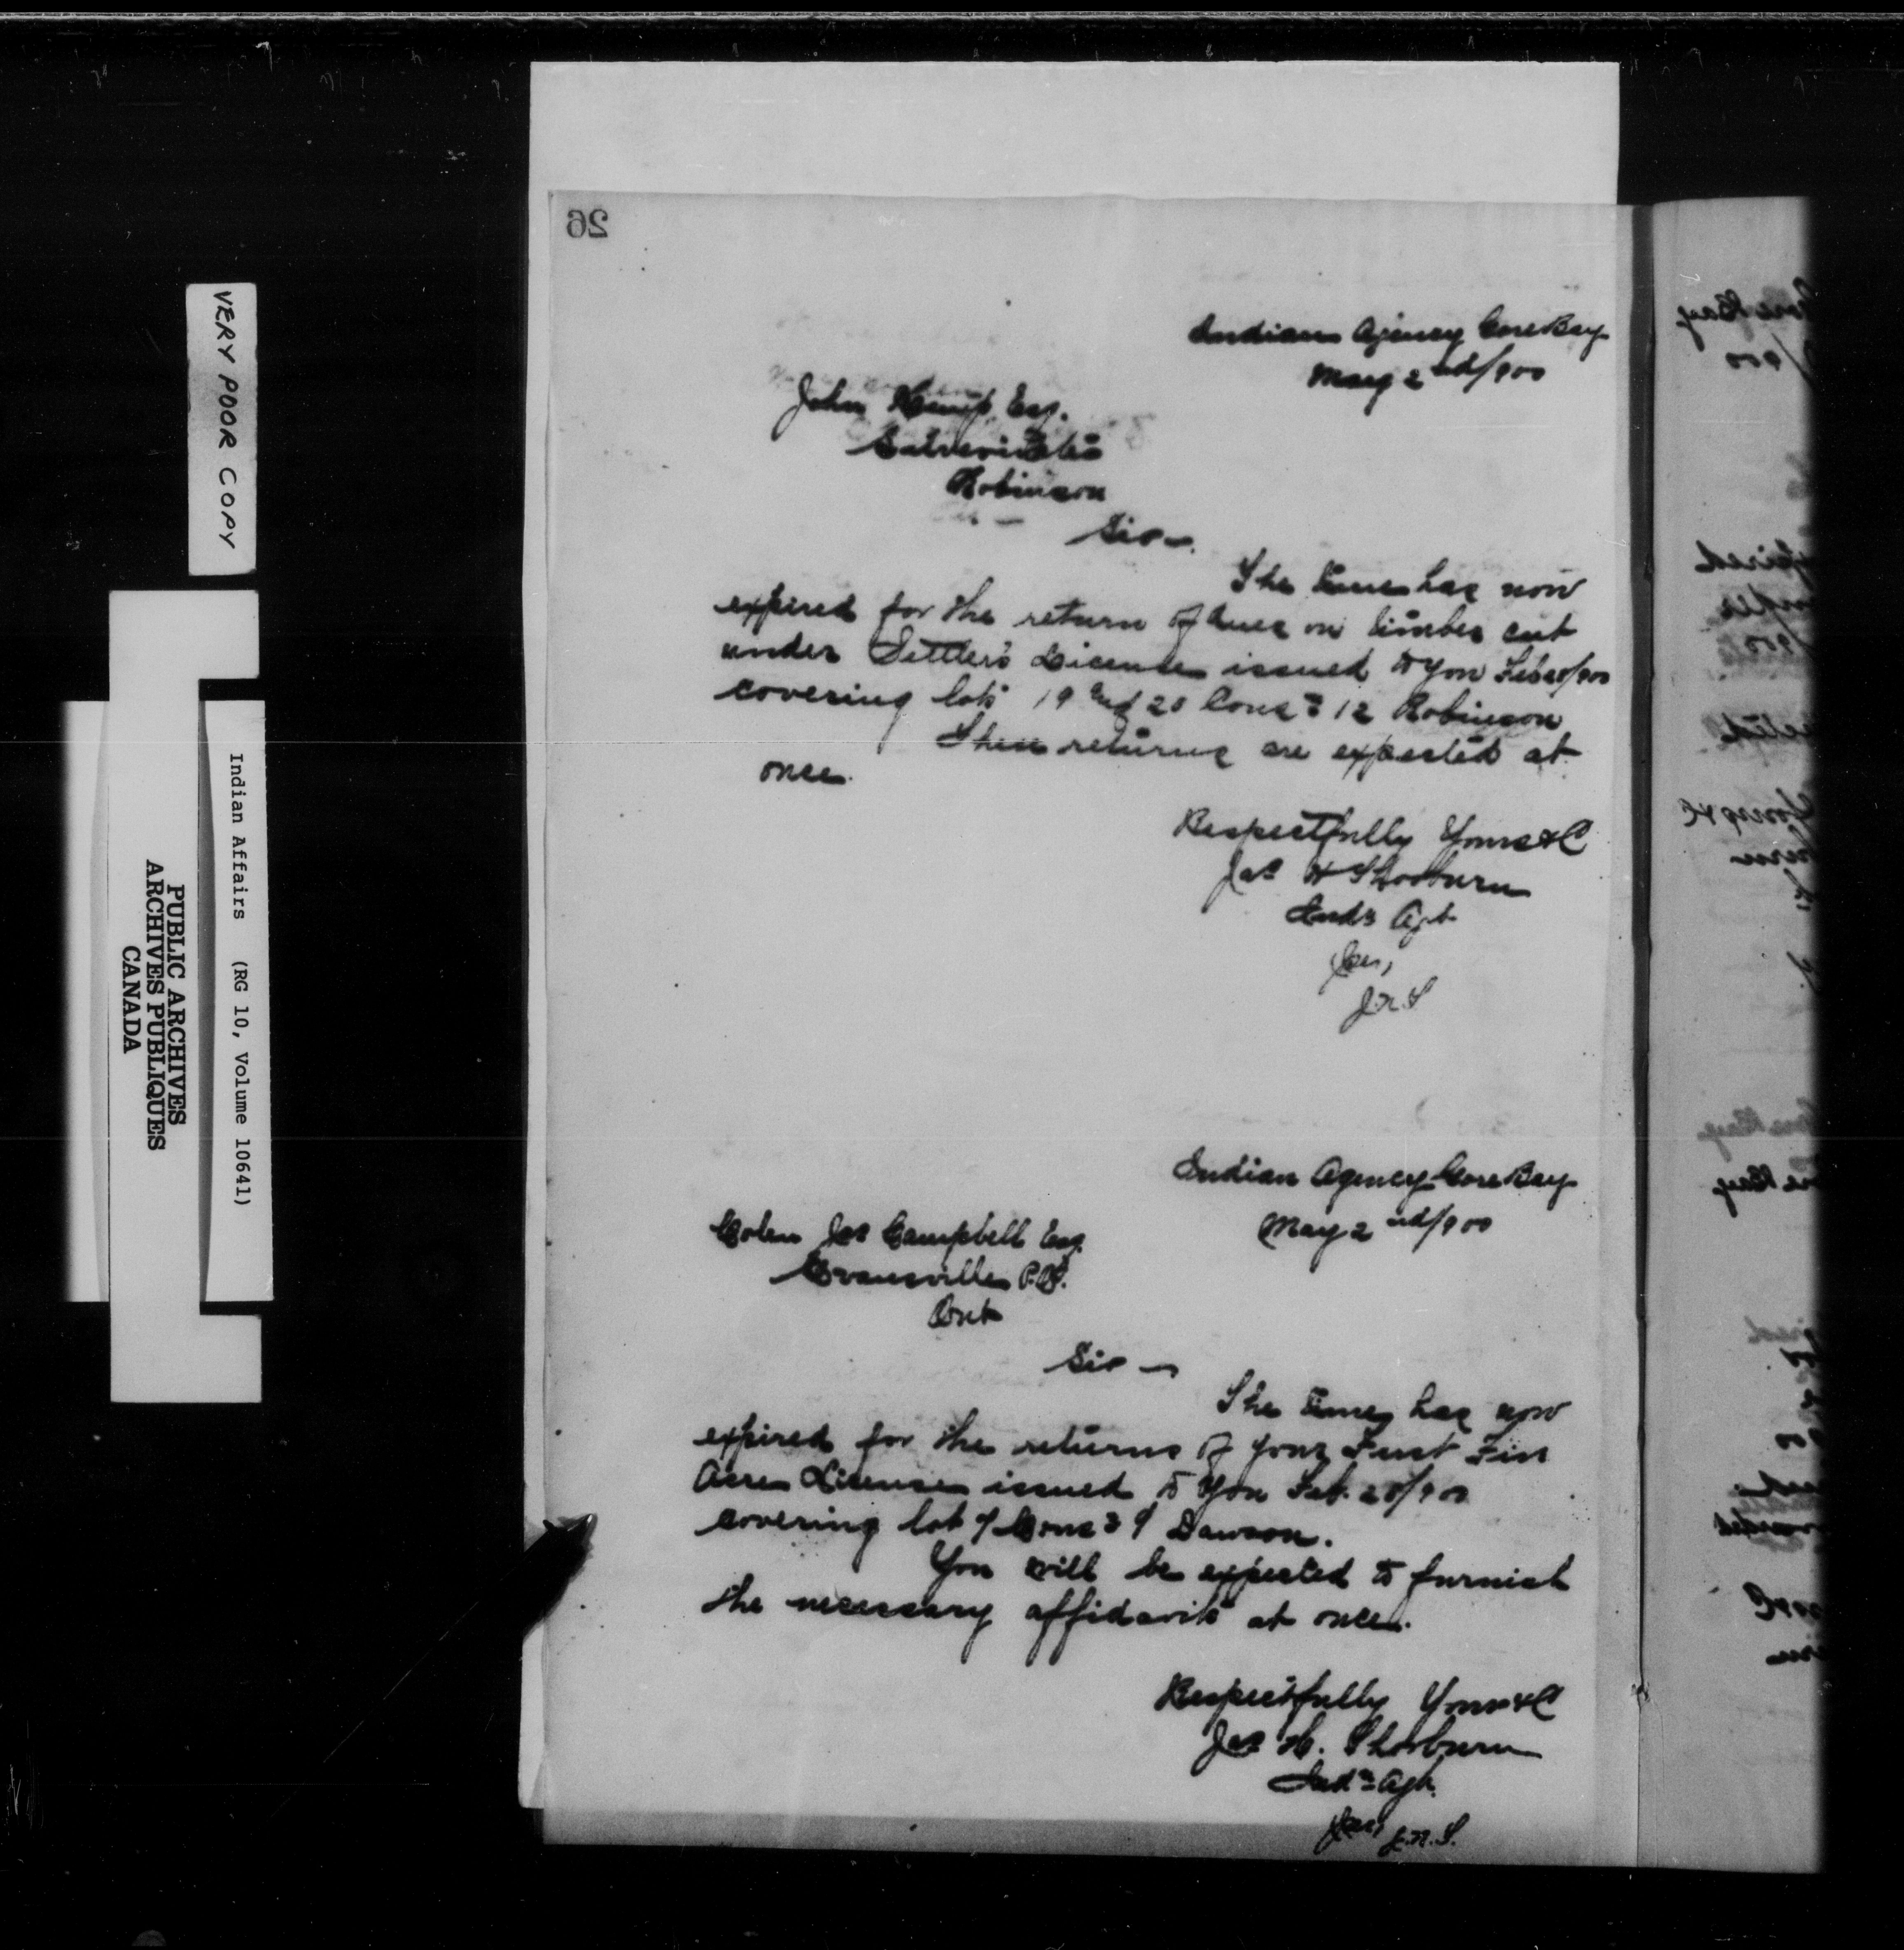 26
Indian Agency Gore Bay
May 2nd/900
John Kemp Esq.
Robinson
Sir —
The time has now
expired for the return of dues on timber cut
under Settler's License issued to you Feb 20/900
covering lots 19 and 20 Conc: 12 Robinson
These returns are expected at
once.
Respectfully Yours &C
Jas H Thorburn
Ind: Agt
Per,
J.N.T
Indian Agency Gore Bay
May 2nd/900
Colen Jas Campbell Esq.
Evansville P.O.
Ont
Sir —
The time has now
expired for the returns of your First Five
Acre License issued to you Feb. 20/900
covering lot 7 Conc: 9 Dawson.
You will be expected to furnish
the necessary affidavits at once.
Respectfully Yours &C
Jas H. Thorburn
Ind: Agt.
Per, J.N.T.
VERY POOR COPY
Indian Affairs (RG 10, Volume 10641)
PUBLIC ARCHIVES
ARCHIVES PUBLIQUES
CANADA